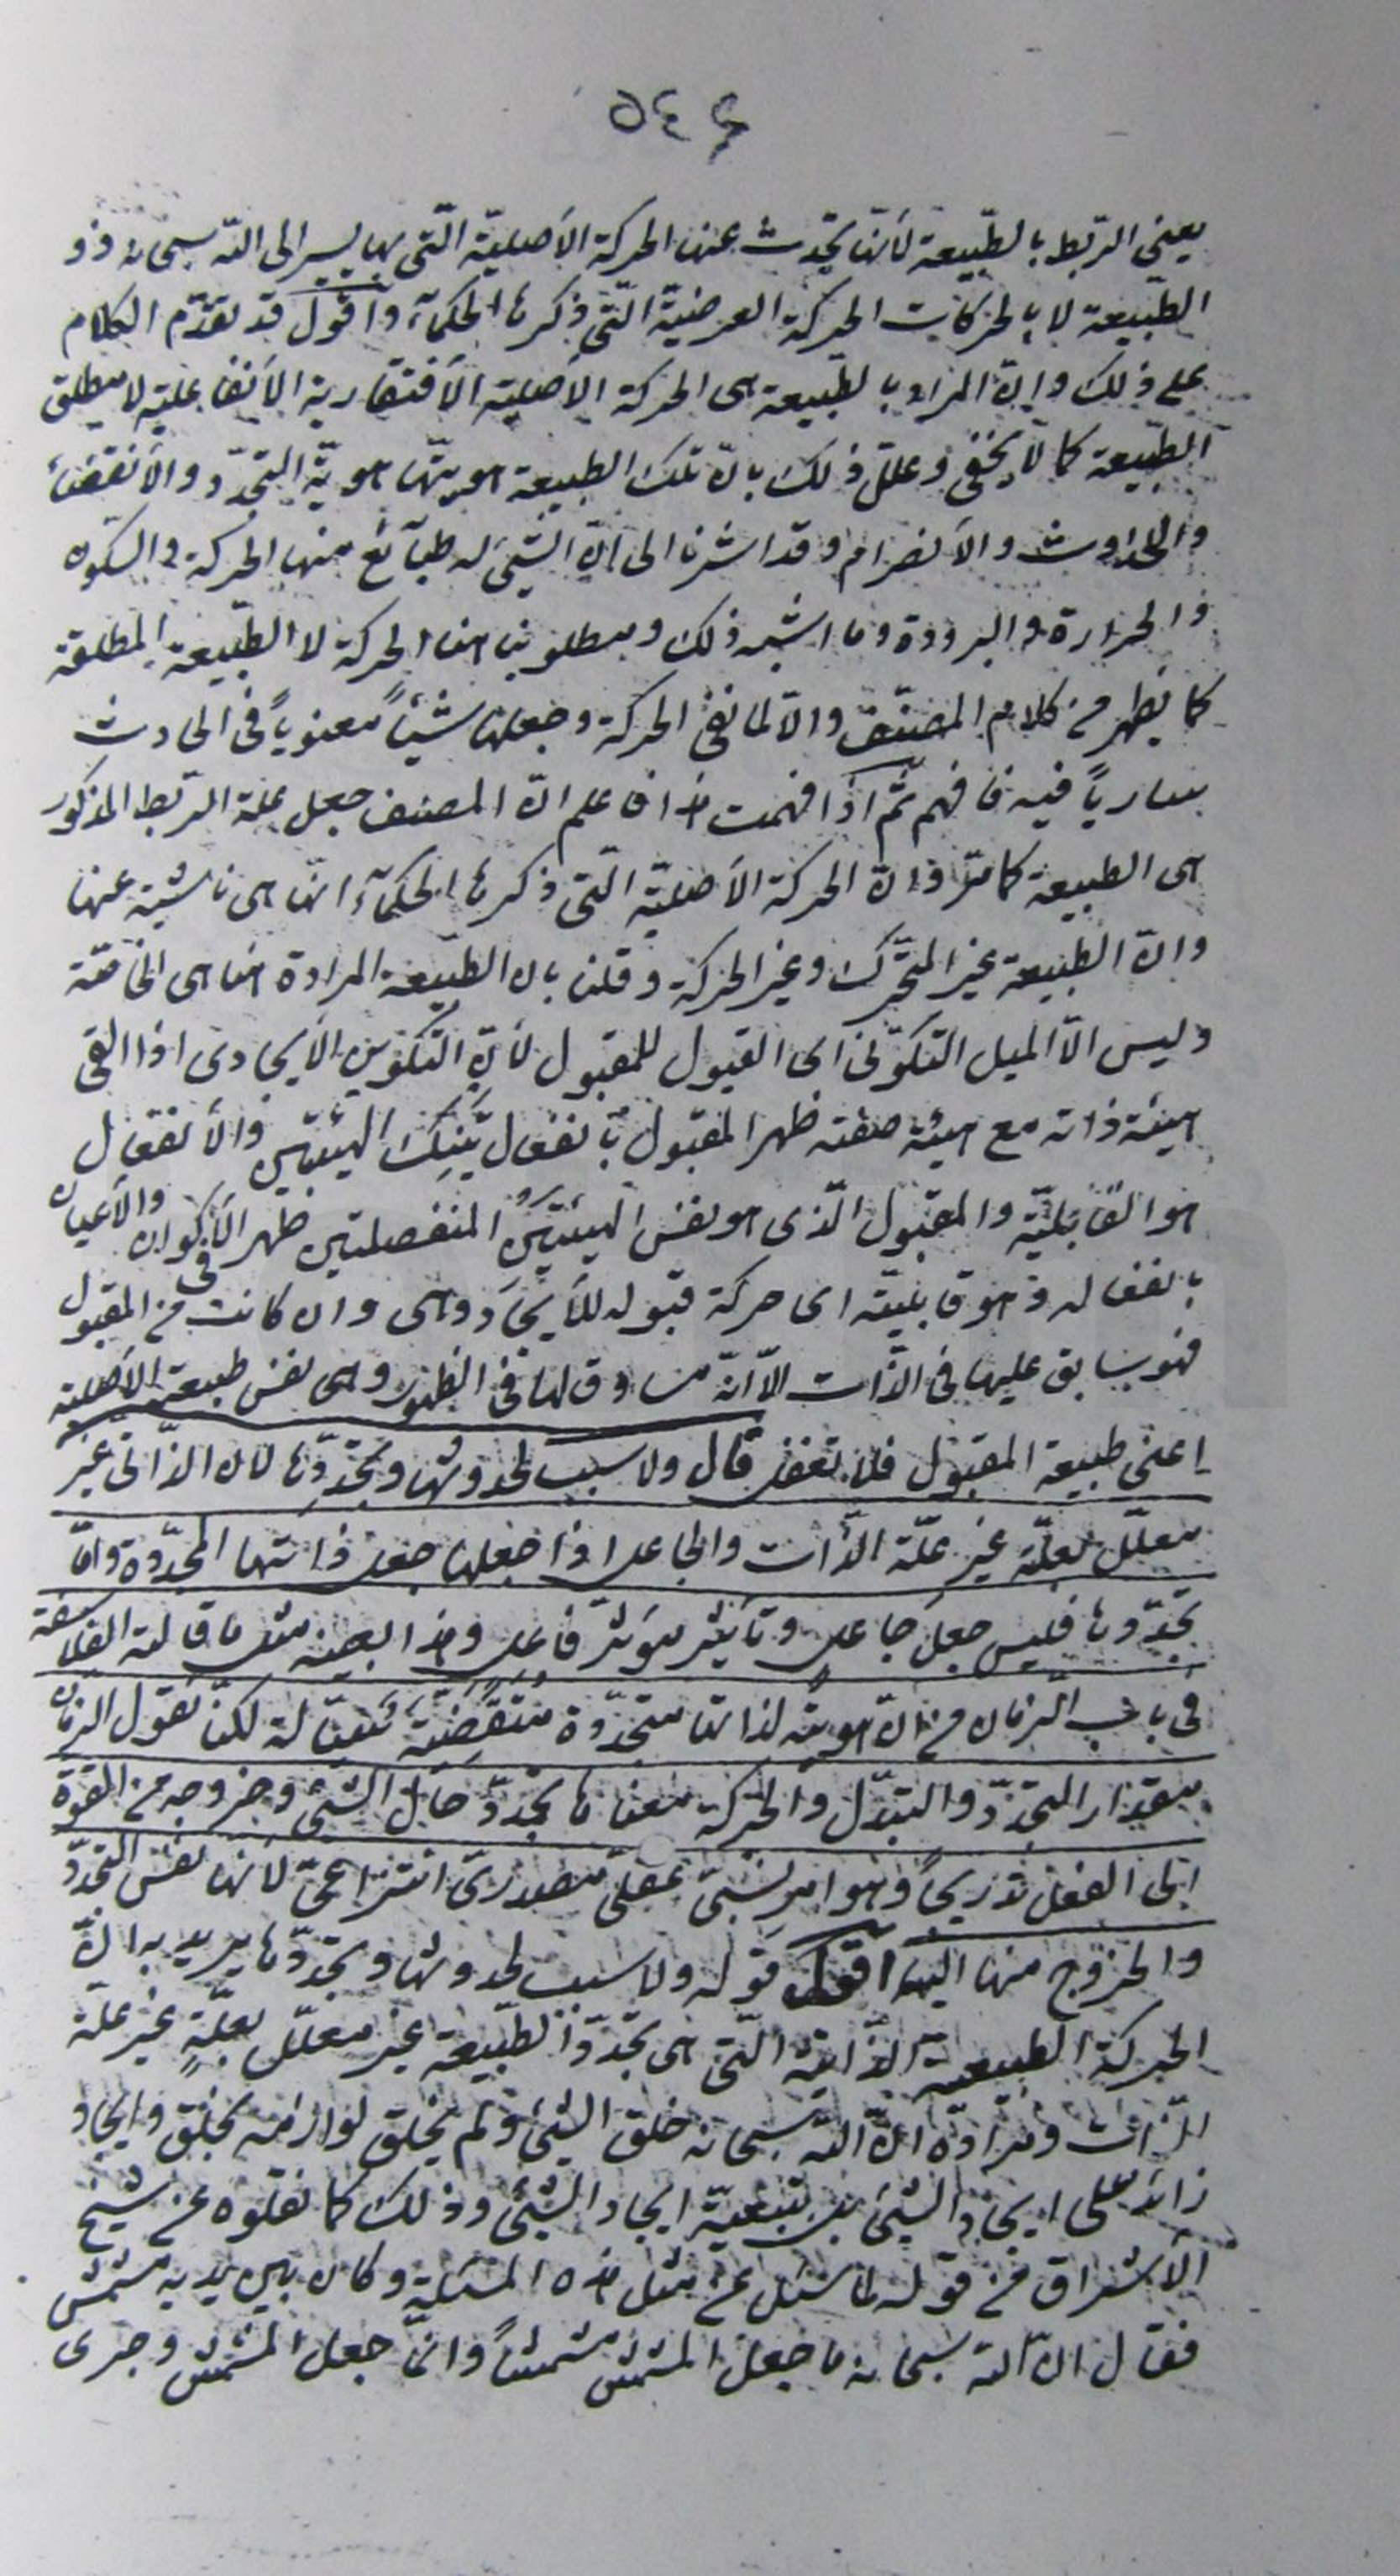 ٥٤٤
يعنى الربط بالطّبيعة لأنّها تحدث عنها الحركة الأصليّة الّتى بها يسير الى اللّه سبحانه ذو و
الطّبيعة لا بالحركات الحركة العرضيّة الّتى ذكرها الحكمآء واقول قد تقدّم الكلام
على ذلك وانّ المراد بالطّبيعة هى الحركة الأصلية الأفتقارية الأنفعاليّة لا مطلق
الطّبيعة كما لا يخفى وعلّل ذلك بانّ تلك الطبيعة هويتها هويّة التجدّد والأنقضآء
والحدوث والأنصرام وقد اشرنا الى انّ الشّئ له طبآئع منها الحركة والسكون
والحرارة والبرودة وما اشبه ذلك ومطلوبنا هنا الحركة لا الطّبيعة المطلقة
كما يظهر من كلام المصنّف والّا لما نفى الحركة وجعلها شيئاً معنوياً فى الحادث
سارياً فيه فافهم ثمّ اذا فهمت هذا فاعلم انّ المصنف جعل علة الربط المذكور
هى الطبيعة كما مرّ وانّ الحركة الأصليّة الّتى ذكرها الحكمآء انّما هى ناشية عنها
وانّ الطّبيعة غير المتحّرك وغير الحركة وقلنا بان الطّبيعة المرادة هنا هى الخافقة
وليس الّا الميل التّكوّنى اى القبول للمقبول لأنّ التّكوين الأيجادى اذا القى
هيئة ذاته مع هيئة صفته ظهر المقبول بانفعال تينك الهيئتين والأنفعال
هو القابليّة والمقبول الّذى هو نفس الهيئتين المنفصلتين ظهر فى الأكوان والأعيان
بانفعاله وهو قابليّته اى حركة قبوله للأيجاد وهى وان كانت من المقبول
فهو سابق عليها فى الذّات الّا انّه مساوق لها فى الظهور وهى نفس طبيعة الأصلية
اعنى طبيعة المقبول فلا تغفل قال ولا سبب لحدوثها وتجدّدها لان الذّاتى غير
معلّل بعلّة غير علّة الذّات والجاعل اذا جعلها جعل ذاتها المتجدّدة وامّا
تجدّدها فليس جعل جاعل وتأثير مؤثر فاعل وهذا بعينه مثل ما قالته الفلاسفة
فى باب الزمان من انّ هويته لذاتها متجدّدة متقضّية سيّالة لكنّا نقول الزمان
مقدار التجدّد والتبدّل والحركة معناها تجدّد حال الشئ وخروجه من القوّة
الى الفعل تدريجاً وهو امر نسبىّ عقلىّ مصدرىّ انتزاعىّ لأنّها نفس التجدّد
والخروج منها اليه اقول قوله ولا سبب لحدوثها وتجدّدها يريد به انّ
الحركة الطبيعية الذّاتية الّتى هى تجدّد الطّبيعة غير معلّل بعلّةٍ غير علّة
الذّات ومراده انّ اللّه سبحانه خلق الشئ ولم يخلق لوازمه بخلق وايجاد
زائد على ايجاد الشئ بل بتبعيّة ايجاد الشّئ وذلك كما نقلوه عن شيخ
الأشراق من قوله لما سئل عن مثل هذه المسئلة وكان بين يديه مشمش
فقال انّ اللّه سبحانه ما جعل المشمش مشمشاً وانّما جعل المشمش وجرى